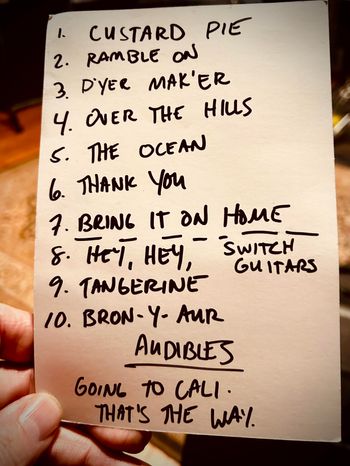 1. CUSTARD PIE
2. RAMBLE ON
3. D'YER MAK'ER
4. OVER THE HILLS
5. THE OCEAN
6. THANK YOU
7. BRING IT ON HOME
8. HEY, HEY, SWITCH GUITARS
9. TANGERINE
10. BRON-Y-AUR
AUDIBLES
GOING TO CALI.
THAT'S THE WAY.